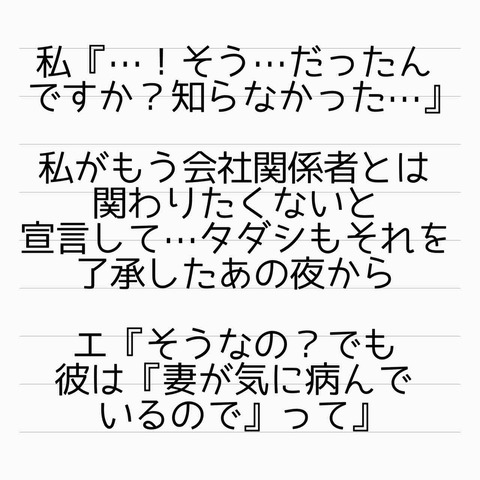 私『…！そう…だったん
ですか？知らなかった…』
私がもう会社関係者とは
関わりたくないと
宣言して…タダシもそれを
了承したあの夜から
エ『そうなの？でも
彼は『妻が気に病んで
いるので』って』